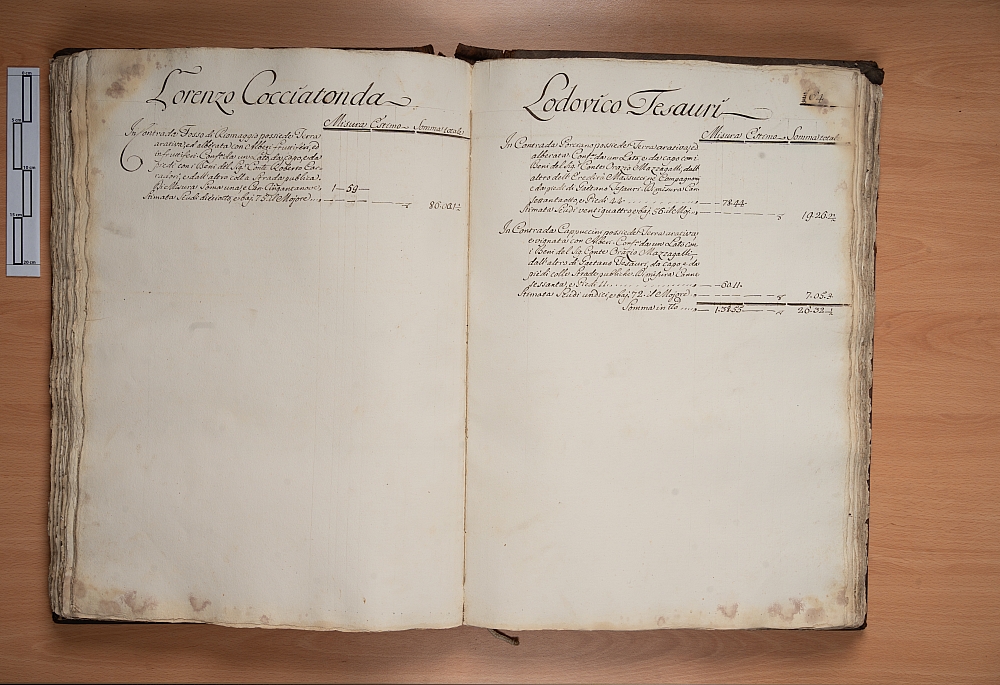 Lorenzo Cocciatonda
Misura Estimo Somma totale
In Contrada Fosso di Riomaggio possiede Terra
arativa, ed alborata con Alberi fruttiferi, ed
infruttiferi Conf. da un Lato, da capo, e da
piedi con i Beni del Sig. Conte Roberto
e dall'altro colla Strada publica
Di Misura Soma una, e Can. Cinquanta nove 1—59—
Stimata Scudi e baj. 75. il Mojore
86.06.1½
Lodovico Tesauri
Misura Estimo Somma total
In Contrada Porziano possiede Terra arativa, ed
alborata Conf. da un Lato, e da capo con i
Beni del Sig. Conte Orazio Mazzagatti, dall'
altro dell'Eredi Massucci, e Compagnoni
e da piedi di Gaetano Tesauri. Di misura Can.
settantaotto, e Piedi 44 — 78.44
Stimata Scudi ventiquattro e baj. 56. il Moj.
19.26.2½
In Contrada Cappuccini possiede Terra arativa
e vignata con Alberi. Conf. da un Lato con
i Beni del Sig. Conte Orazio Mazzagatti
dall'altro di Gaetano Tesauri, da capo, e da
piedi colle Strade publiche. Di misura Canne
sessanta, e Piedi 11 — 60.11
Stimata Scudi undici, e baj. 72. il Mojore
7.05.9
Somma in tto — 1.38.55 — 26.32½